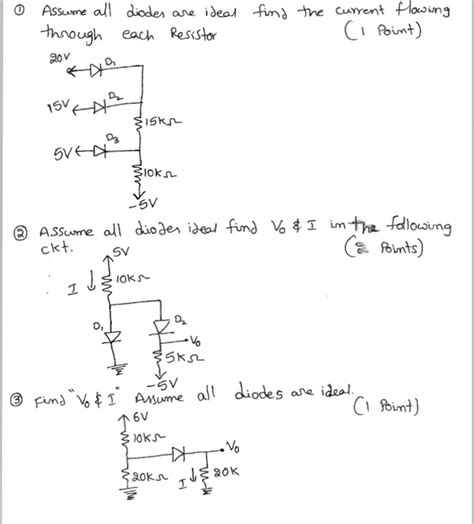 ① Assume all diodes are ideal find the current flowing
through each Resistor (1 Point)
20V
D₁
15V
D₂
15KΩ
5V
D₃
10KΩ
-5V
② Assume all diodes ideal find V₀ & I in the following
ckt. (2 Points)
5V
I
10KΩ
D₁
D₂
V₀
5KΩ
-5V
③ Find "V₀ & I" Assume all diodes are ideal.
(1 Point)
6V
10KΩ
V₀
20KΩ
I
20K